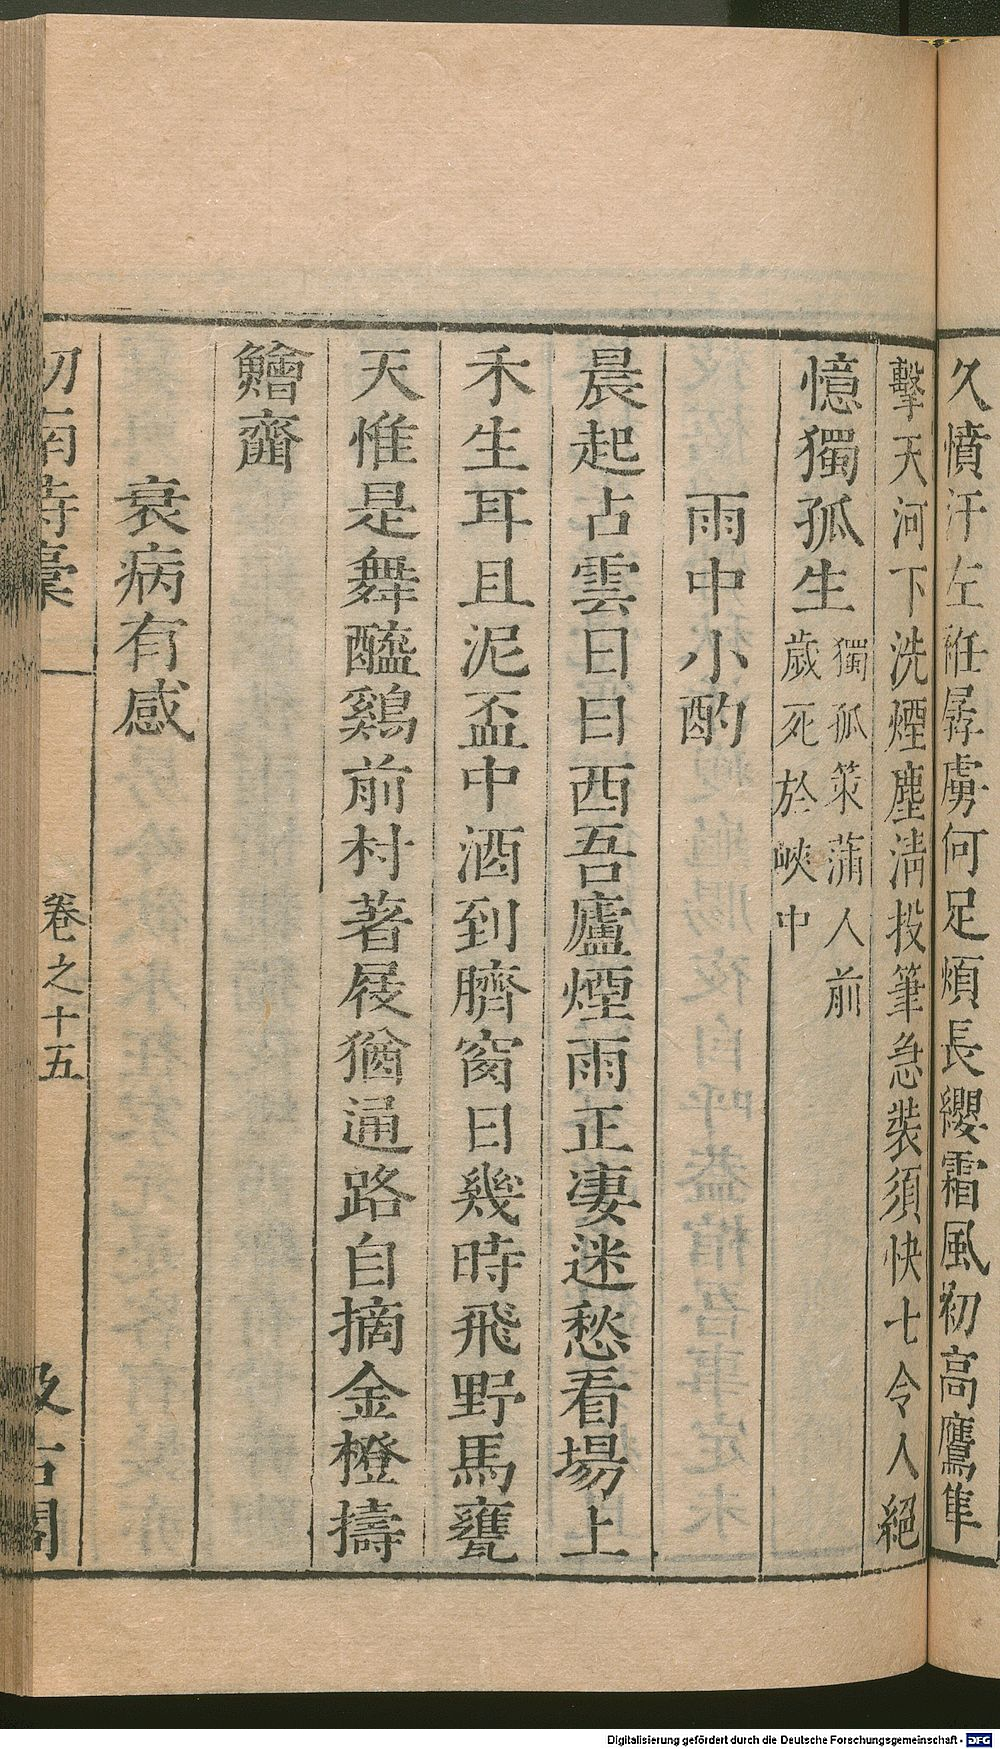 久憤汗左衽孱虜何足煩長纓霜風初高鷹隼
擊天河下洗煙塵清投筆急裝須快七令人絕
憶獨孤生
獨孤策蒲人前
歲死於峽中
雨中小酌
晨起占雲日日西吾廬煙雨正凄迷愁看場上
禾生耳且泥盃中酒到臍窗日幾時飛野馬甕
天惟是舞醯鷄前村著屐猶通路自摘金橙擣
鱠齏
衰病有感
劒南詩稾
卷之十五
汲古閣
Digitalisierung gefördert durch die Deutsche Forschungsgemeinschaft - DFG